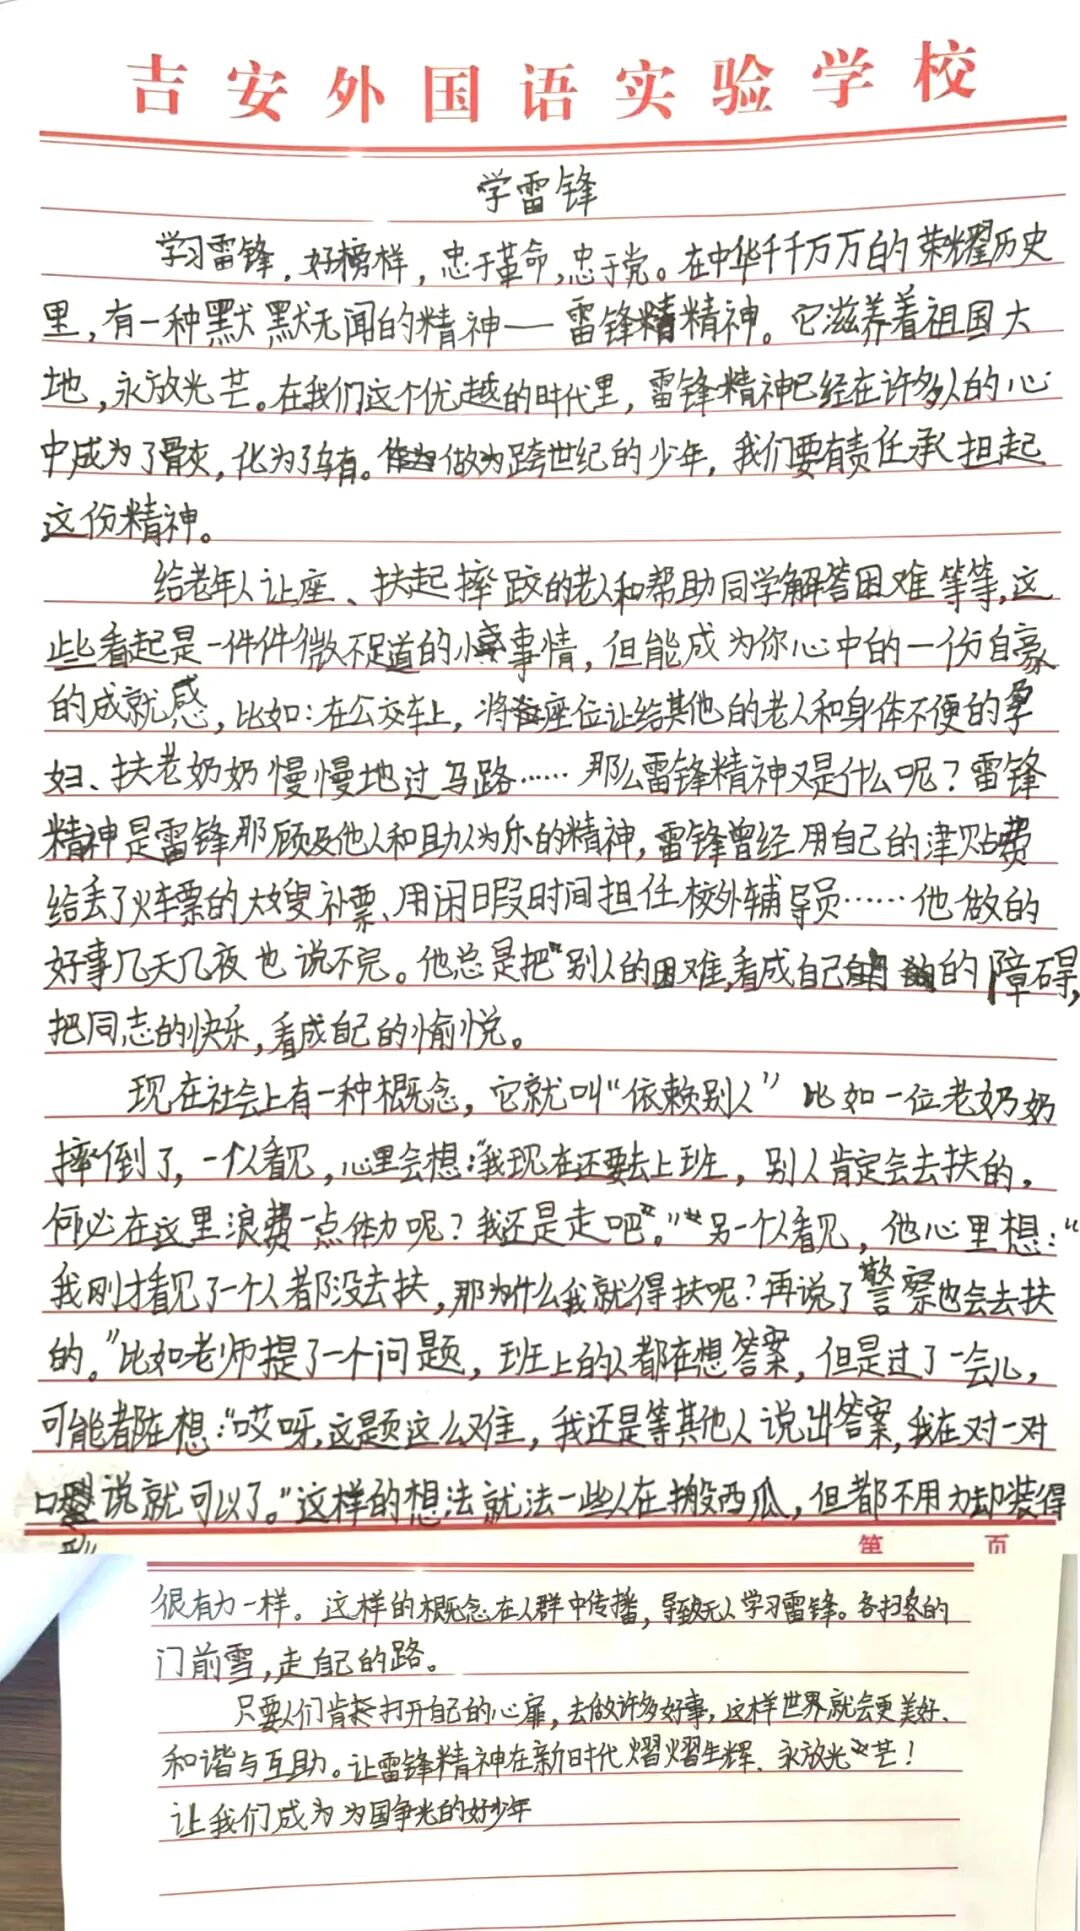 吉安外国语实验学校
学雷锋
学习雷锋，好榜样，忠于革命，忠于党。在中华千千万万的荣耀历史
里，有一种默默无闻的精神——雷锋精神。它滋养着祖国大
地，永放光芒。在我们这个优越的时代里，雷锋精神已经在许多人的心
中成为了骨灰，化为了乌有。做为跨世纪的少年，我们要有责任承担起
这份精神。
给老年人让座、扶起摔跤的老人和帮助同学解答困难等等，这
些看起是一件件微不足道的小事情，但能成为你心中的一份自豪
的成就感，比如：在公交车上，将座位让给其他的老人和身体不便的孕
妇、扶老奶奶慢慢地过马路……那么雷锋精神又是什么呢？雷锋
精神是雷锋那顾及他人和助人为乐的精神，雷锋曾经用自己的津贴费
给丢了火车票的大嫂补票、用闲暇时间担任校外辅导员……他做的
好事几天几夜也说不完。他总是把“别人的困难，看成自己的障碍，
把同志的快乐，看成自己的愉悦。
现在社会上有一种概念，它就叫“依赖别人”比如一位老奶奶
摔倒了，一个人看见，心里会想：“我现在还要去上班，别人肯定会去扶的，
何必在这里浪费一点体力呢？我还是走吧。”另一个人看见，他心里想：“
我刚才看见了一个人都没去扶，那为什么我就得扶呢？再说了警察也会去扶
的。”比如老师提了一个问题，班上的人都在想答案，但是过了一会儿，
可能都在想：“哎呀，这题这么难，我还是等其他人说出答案，我在对一对
口型说就可以了。”这样的想法就法一些人在搬西瓜，但都不用力却装得
第 页
很有力一样。这样的概念在人群中传播，导致无人学习雷锋。各扫各的
门前雪，走自己的路。
只要人们肯打开自己的心扉，去做许多好事，这样世界就会更美好、
和谐与互助。让雷锋精神在新时代熠熠生辉、永放光芒！
让我们成为为国争光的好少年